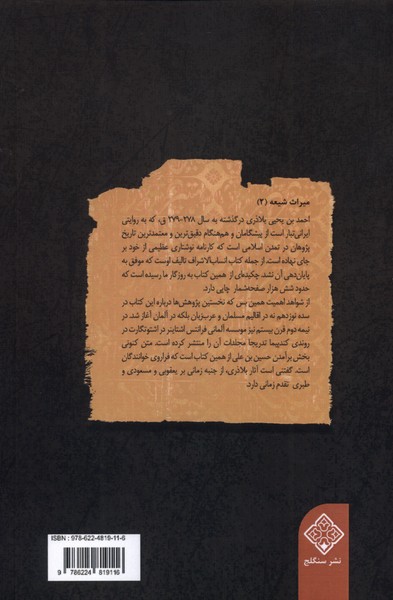 میراث شیعه (۲)
احمد بن یحیی بلاذری درگذشته به سال ۲۷۸-۲۷۹ ق، که به روایتی
ایرانی‌تبار است از پیشگامان و هم‌هنگام دقیق‌ترین و معتمدترین تاریخ
پژوهان در تمدن اسلامی است که کارنامه نوشتاری عظیمی از خود بر
جای نهاده است. از جمله کتاب انساب‌الاشراف تالیف اوست که موفق به
پایان‌دهی آن نشد. چکیده‌ای از همین کتاب به روزگار ما رسیده است که
حدود شش هزار صفحه‌شمار چاپی دارد.
از شواهد اهمیت همین بس که نخستین پژوهش‌ها درباره این کتاب در
سده نوزدهم نه در اقالیم مسلمان و عرب‌زبان بلکه در آلمان آغاز شد. در
نیمه دوم قرن بیستم نیز موسسه آلمانی فرانتس اشتاینر در اشتوتگارت در
روندی کندپیما تدریجاً مجلدات آن را منتشر کرده است. متن کنونی
بخش برآمدن حسین بن علی از همین کتاب است که فراروی خوانندگان
است. گفتنی است آثار بلاذری، از جنبه زمانی بر یعقوبی و مسعودی و
طبری تقدم زمانی دارد.
ISBN: 978-622-4819-11-6
9 786224 819116
نشر سنگلج